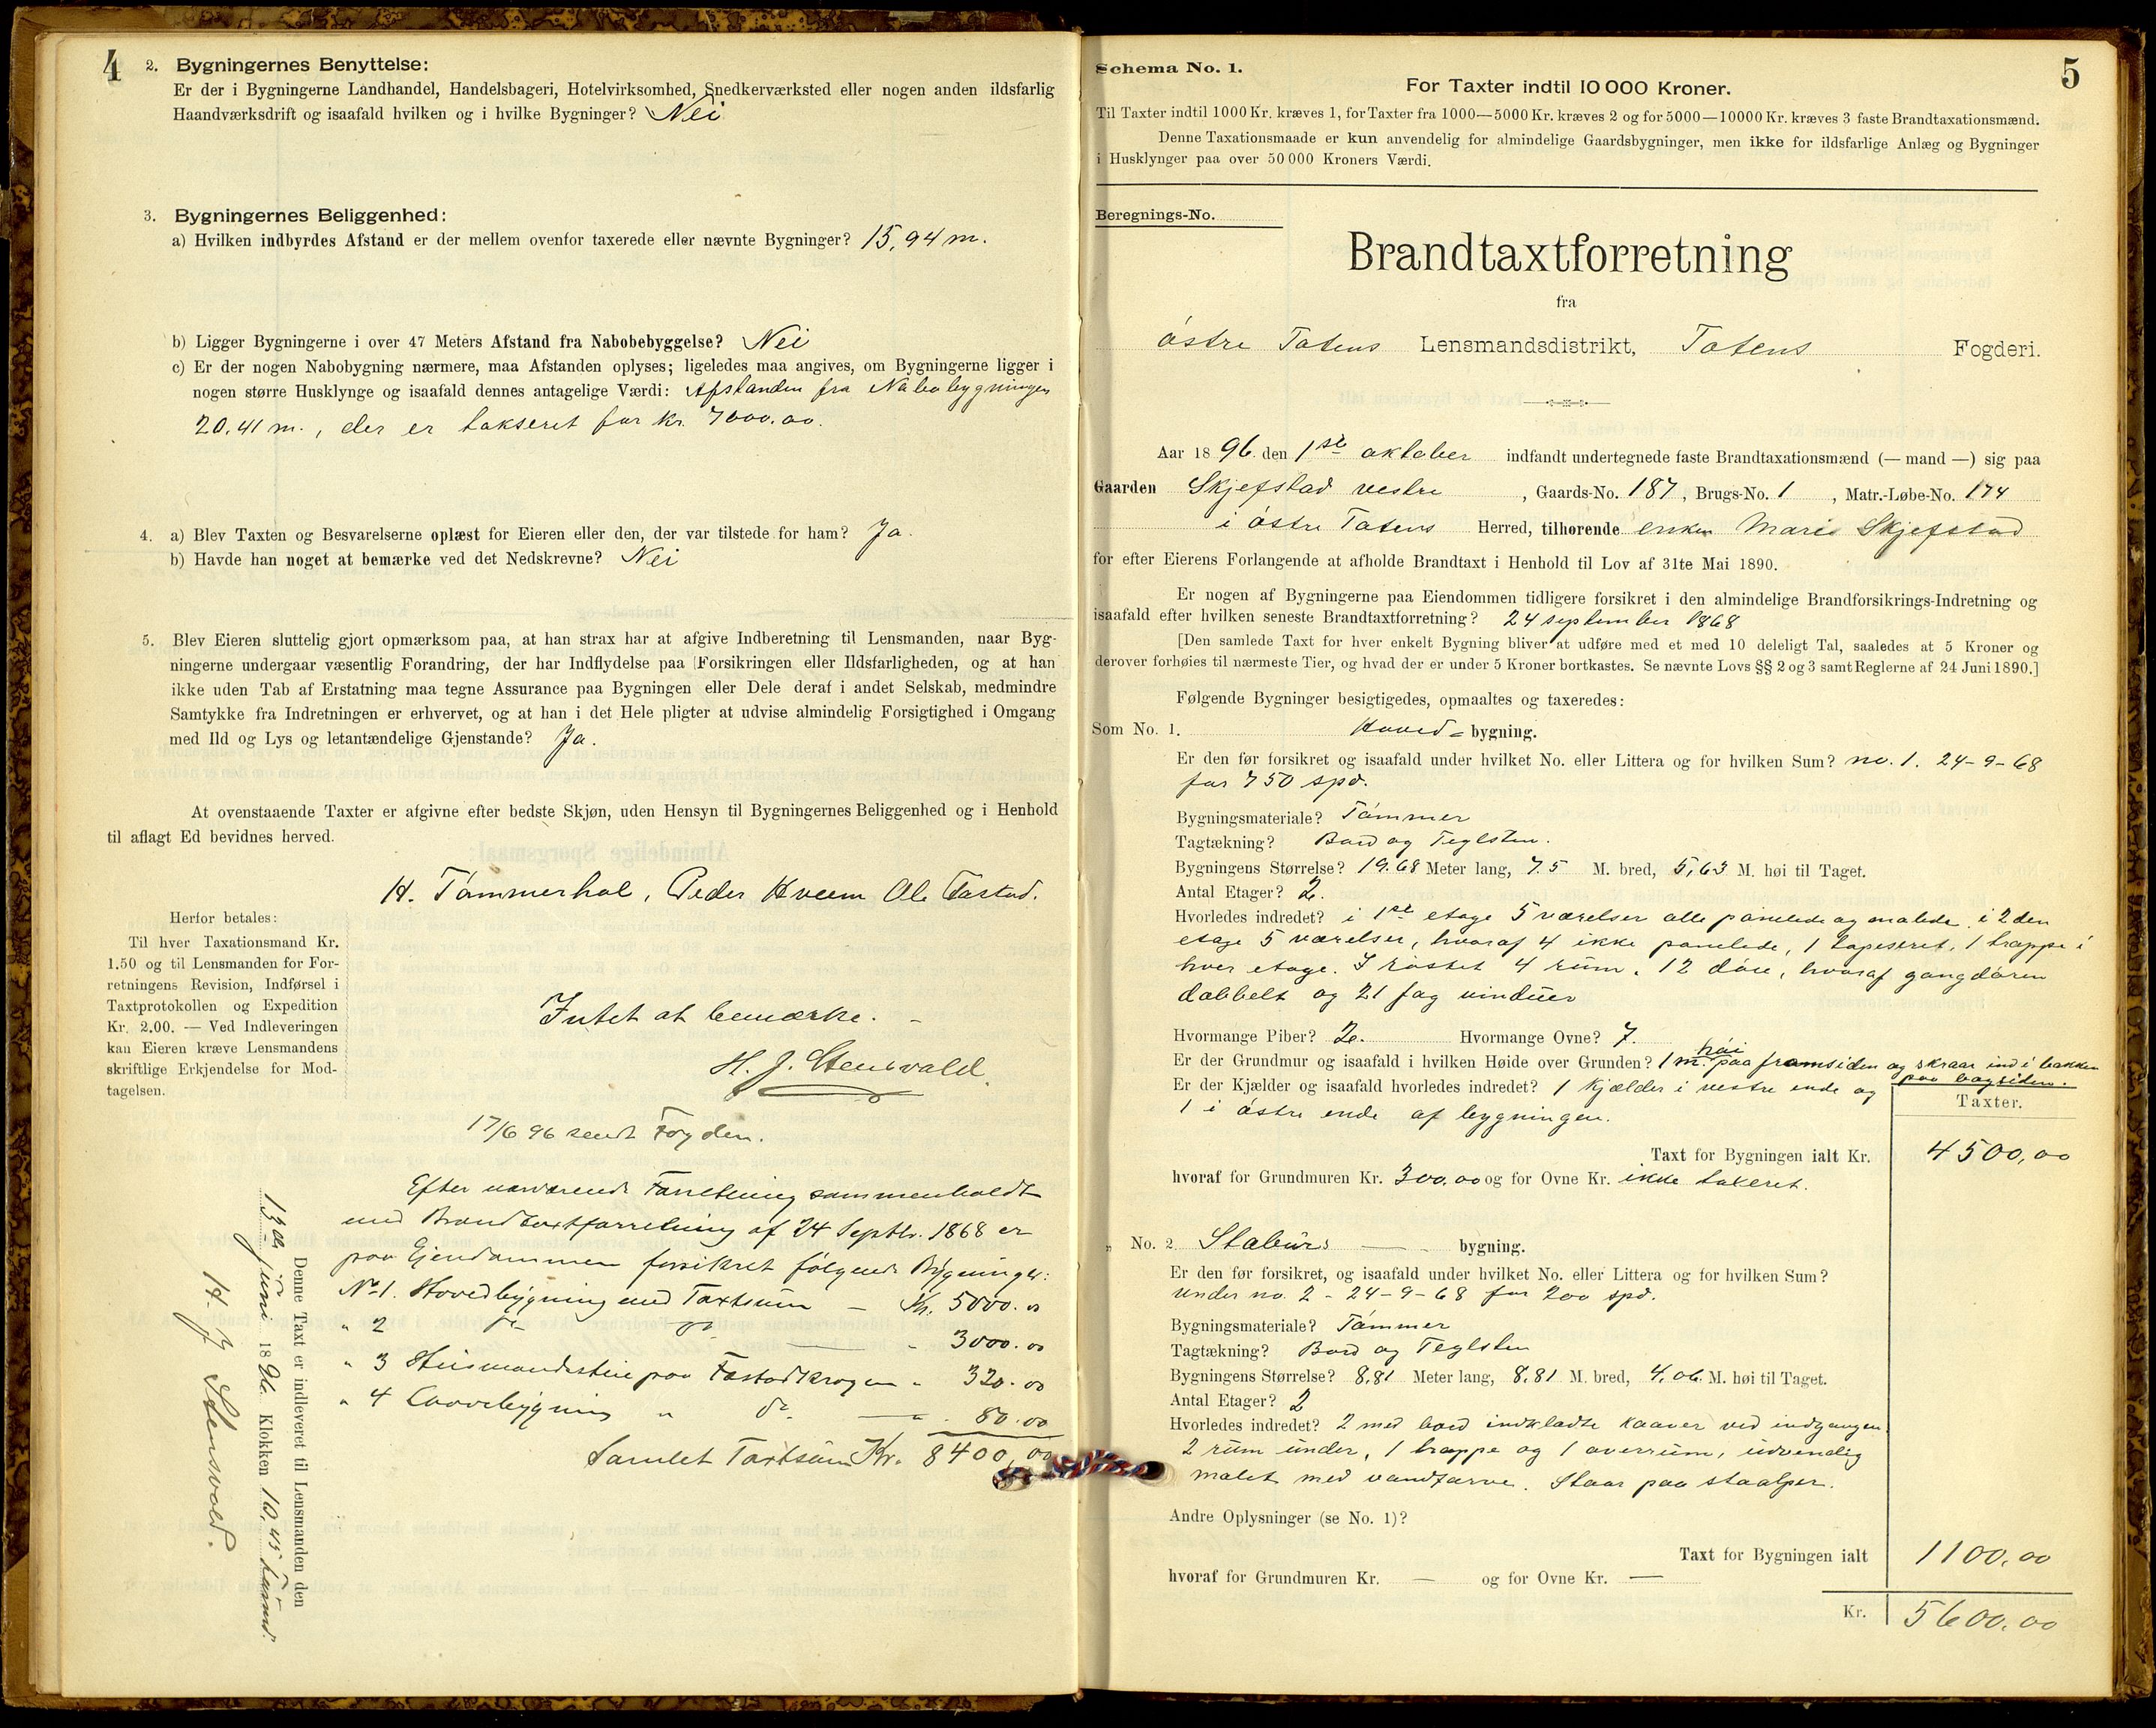 4
2. Bygningernes Benyttelse:
Er der i Bygningerne Landhandel, Handelsbageri, Hotelvirksomhed, Snedkerværksted eller nogen anden ildsfarlig
Haandværksdrift og isaafald hvilken og i hvilke Bygninger? Nei
3. Bygningernes Beliggenhed:
a) Hvilken indbyrdes Afstand er der mellem ovenfor taxerede eller nævnte Bygninger? 15,94 m.
b) Ligger Bygningerne i over 47 Meters Afstand fra Nabobebyggelse? Nei
c) Er der nogen Nabobygning nærmere, maa Afstanden oplyses; ligeledes maa angives, om Bygningerne ligger i
nogen større Husklynge og isaafald dennes antagelige Værdi: Afstanden fra Nabobygningen
20,41 m., der er takseret for kr. 7000.00.
4. a) Blev Taxten og Besvarelserne oplæst for Eieren eller den, der var tilstede for ham? Ja.
b) Havde han noget at bemærke ved det Nedskrevne? Nei
5. Blev Eieren sluttelig gjort opmærksom paa, at han strax har at afgive Indberetning til Lensmanden, naar Byg-
ningerne undergaar væsentlig Forandring, der har Indflydelse paa Forsikringen eller Ildsfarligheden, og at han
ikke uden Tab af Erstatning maa tegne Assurance paa Bygningen eller Dele deraf i andet Selskab, medmindre
Samtykke fra Indretningen er erhvervet, og at han i det Hele pligter at udvise almindelig Forsigtighed i Omgang
med Ild og Lys og letantændelige Gjenstande? Ja.
At ovenstaaende Taxter er afgivne efter bedste Skjøn, uden Hensyn til Bygningernes Beliggenhed og i Henhold
til aflagt Ed bevidnes herved.
H. Tømmerhol, Peder Kveem Ole Fastad.
Herfor betales:
Til hver Taxationsmand Kr.
1.50 og til Lensmanden for For-
retningens Revision, Indførsel i
Taxtprotokollen og Expedition
Kr. 2.00. — Ved Indleveringen
kan Eieren kræve Lensmandens
skriftlige Erkjendelse for Mod-
tagelsen.
Intet at bemærke. –
H. J. Stensvold.
17/6 96 sendt Fogden.
Efter nærværende Forretning sammenholdt
med Brandtaxtforretning af 24 Septbr. 1868 er
paa Ejendommen forsikret følgende Bygninger:
No 1. Hovedbygning med Taxtsum — Kr. 5000.00
" 2 do do — " 3000.00
" 3 Husmandsstue paa Fastadkrogen " 320.00
" 4 Laavebygning " do. — " 80.00
Samlet Taxtsum Kr. 8400,00
Denne Taxt er indleveret til Lensmanden den
13de juni 1896. Klokken 10,45 Formd.
H. J. Stensvold.
5
Schema No. 1.
For Taxter indtil 10 000 Kroner.
Til Taxter indtil 1000 Kr. kræves 1, for Taxter fra 1000—5000 Kr. kræves 2 og for 5000—10000 Kr. kræves 3 faste Brandtaxationsmænd.
Denne Taxationsmaade er kun anvendelig for almindelige Gaardsbygninger, men ikke for ildsfarlige Anlæg og Bygninger
i Husklynger paa over 50 000 Kroners Værdi.
Beregnings-No.
Brandtaxtforretning
fra
østre Totens Lensmandsdistrikt, Totens Fogderi.
Aar 1896. den 1ste oktober indfandt undertegnede faste Brandtaxationsmænd (— mand —) sig paa
Gaarden Skjefstad vestre, Gaards-No. 187, Brugs-No. 1, Matr.-Løbe-No. 174
i østre Totens Herred, tilhørende enken Mari Skjefstad
for efter Eierens Forlangende at afholde Brandtaxt i Henhold til Lov af 31te Mai 1890.
Er nogen af Bygningerne paa Eiendommen tidligere forsikret i den almindelige Brandforsikrings-Indretning og
isaafald efter hvilken seneste Brandtaxtforretning? 24 september 1868
[Den samlede Taxt for hver enkelt Bygning bliver at udføre med et med 10 deleligt Tal, saaledes at 5 Kroner og
derover forhøies til nærmeste Tier, og hvad der er under 5 Kroner bortkastes. Se nævnte Lovs §§ 2 og 3 samt Reglerne af 24 Juni 1890.]
Følgende Bygninger besigtigedes, opmaaltes og taxeredes:
Som No. 1. Hoved- bygning.
Er den før forsikret og isaafald under hvilket No. eller Littera og for hvilken Sum? no. 1. 24-9-68
for 750 spd.
Bygningsmateriale? Tømmer
Tagtækning? Bord og Teglsten.
Bygningens Størrelse? 19.68 Meter lang, 7.5 M. bred, 5,63 M. høi til Taget.
Antal Etager? 2.
Hvorledes indredet? i 1ste etage 5 værelser alle panelede og malede. i 2den
etage 5 værelser, hvoraf 4 ikke panelede, 1 tapeseret, 1 trappe i
hver etage. I røstet 4 rum. 12 døre, hvoraf gangdøren
dobbelt og 21 fag vinduer
Hvormange Piber? 2. Hvormange Ovne? 7.
Er der Grundmur og isaafald i hvilken Høide over Grunden? 1 m. høi paa framsiden og skraar ind i bakken
paa bagsiden.
Er der Kjælder og isaafald hvorledes indredet? 1 kjælder i vestre ende og
1 i østre ende af bygningen.
Taxter.
Taxt for Bygningen ialt Kr. 4500,00
hvoraf for Grundmuren Kr. 300.00 og for Ovne Kr. ikke takeret.
" No. 2 Stabürs — bygning.
Er den før forsikret, og isaafald under hvilket No. eller Littera og for hvilken Sum?
under no. 2 - 24-9-68 for 200 spd.
Bygningsmateriale? Tømmer
Tagtækning? Bord og Teglsten
Bygningens Størrelse? 8,81 Meter lang, 8,81 M. bred, 4,06 M. høi til Taget.
Antal Etager? 2
Hvorledes indredet? 2 med bord indkladte kaaver ved indgangen.
2 rum under, 1 trappe og 1 overrum, udvendig
malet med vandfarve. Staar paa staalper.
Andre Oplysninger (se No. 1)?
Taxt for Bygningen ialt 1100,00
hvoraf for Grundmuren Kr. — og for Ovne Kr. —
Kr. 5600,00